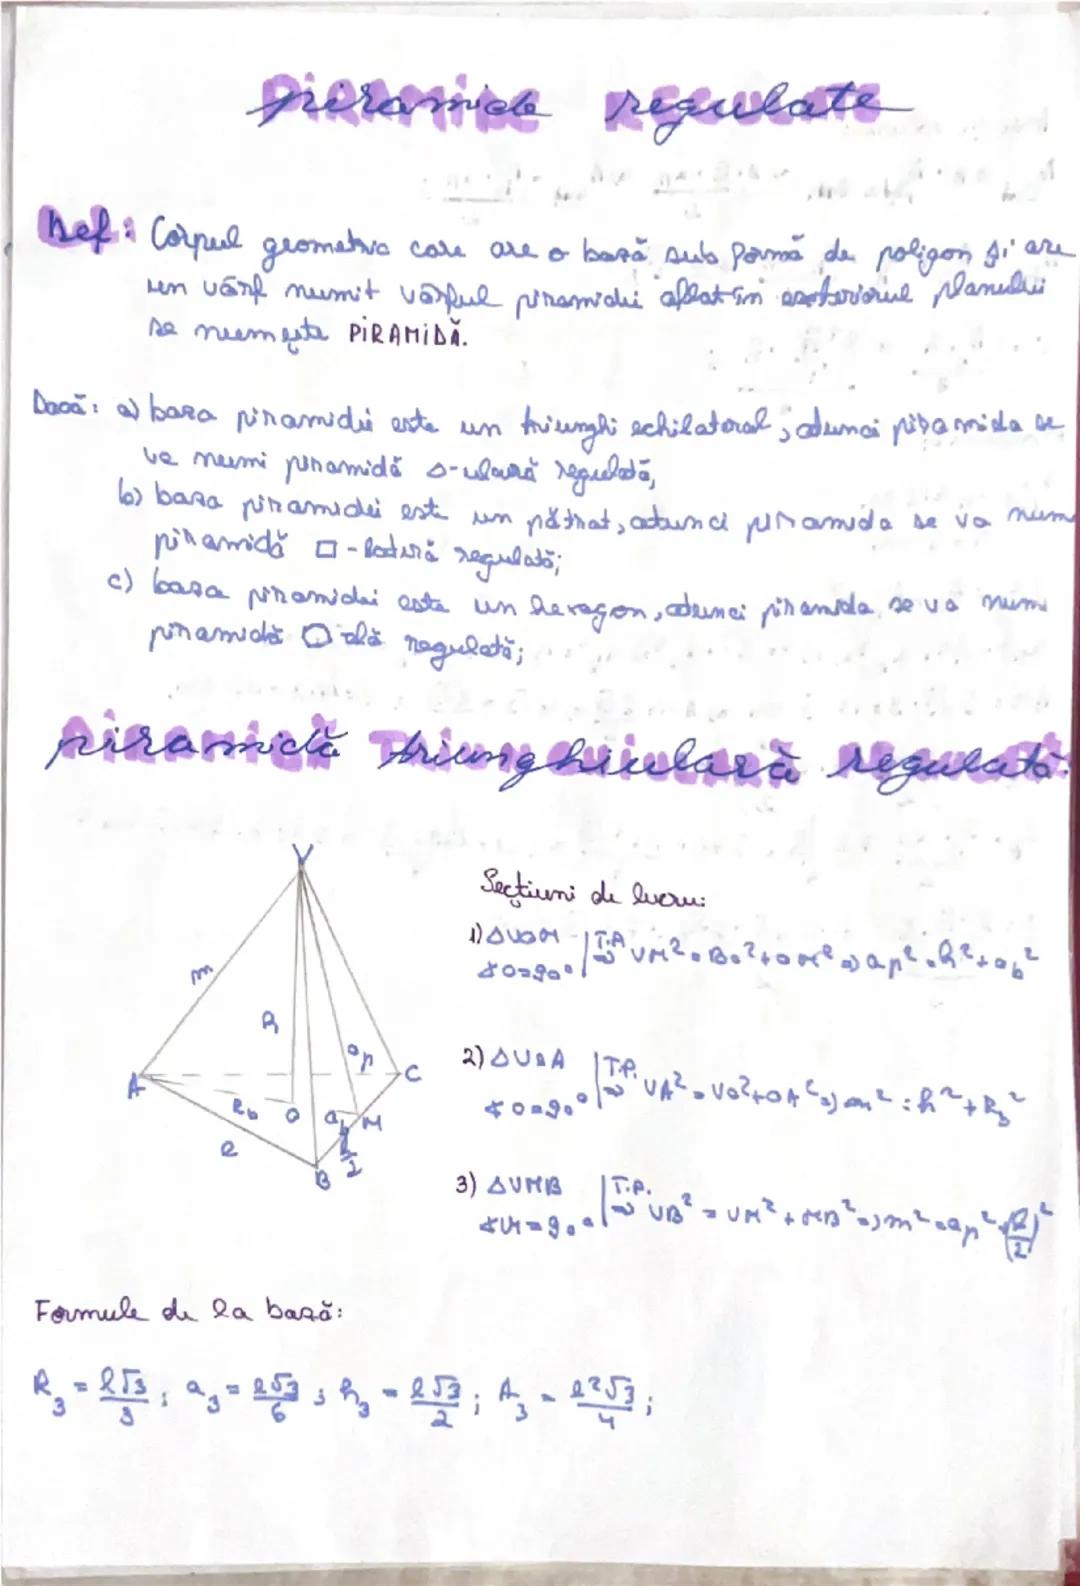 piramide regulate
Def: Corpul geometric care are o bază sub formă de poligon și are
un vârf numit vârful piramidei aflat în exteriorul planului
se numește PIRAMIDĂ.
Dacă: a) baza piramidei este un triunghi echilateral, atunci piramida se
va numi piramidă Δ-ulară regulată;
b) baza piramidei este un pătrat, atunci piramida se va num
piramidă □-lateră regulată;
c) baza piramidei este un hexagon, atunci piramida se va numi
piramidă ⬡ală regulată;
piramidă triunghiulară regulată.
V
Secțiuni de lucru:
1) ΔVOM | T.P. VM² = Vo² + OM² => ap² = h² + ab²
∢O=90° | =>
m
h
ap
2) ΔVOA | T.P. VA² = Vo² + OA² => m² = h² + R₃²
∢O=90° | =>
A
C
Rb O ab M
l
l/2
B
3) ΔVMB | T.P. VB² = VM² + MB² => m² = ap² + (l/2)²
∢M=90° | =>
Formule de la bază:
R₃ = l√3/3 ; a₃ = l√3/6 ; h₃ = l√3/2 ; A₃ = l²√3/4 ;